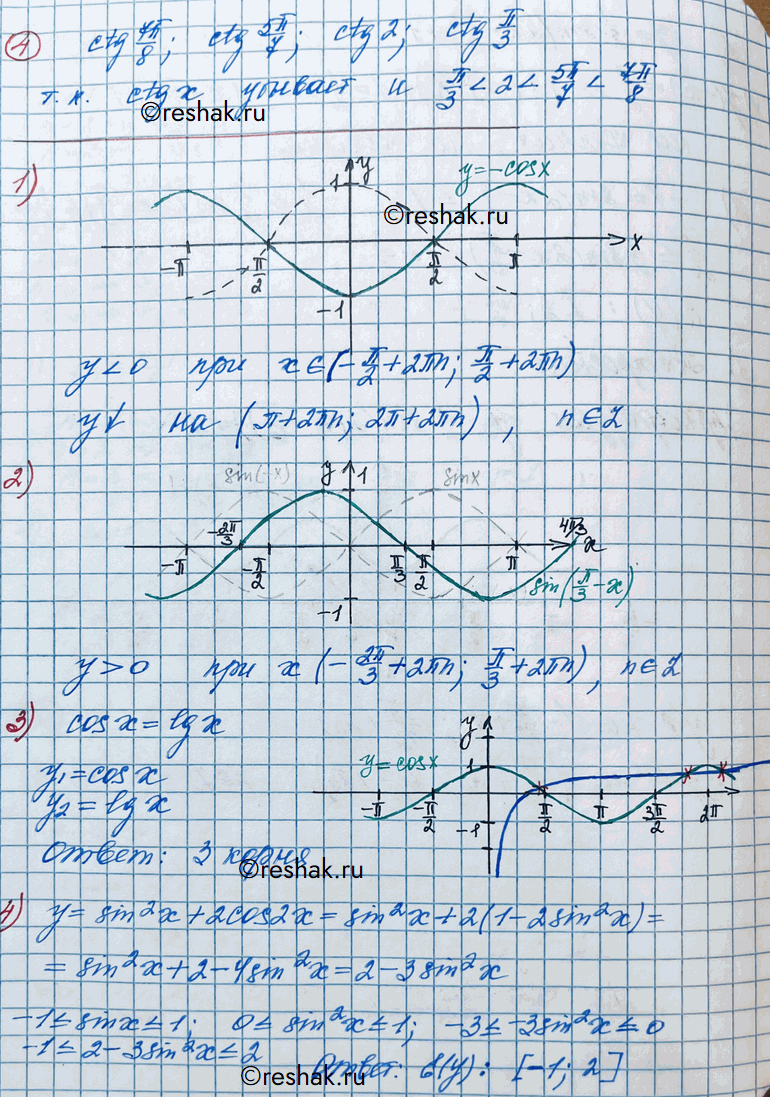 4 ctg 7π/8; ctg 5π/7; ctg 2; ctg π/3
т.к. ctg x убывает и π/3 < 2 < 5π/7 < 7π/8
©reshak.ru
1)
y
1
y=-cosx
©reshak.ru
-π π/2 π/2 π x
-1
y<0 при x∈(-π/2+2πn; π/2+2πn)
y↓ на (π+2πn; 2π+2πn), n∈Z
2)
sin(-x) y 1 sinx
-2π/3 4π/3
-π -π/2 π/3 π/2 π x
-1 sin(π/3-x)
y>0 при x (-2π/3+2πn; π/3+2πn), n∈Z
3) cosx=lgx
y
y₁=cosx
y=cosx 1
y₂=lgx
-π -π/2 π/2 π 3π/2 2π
-1
Ответ: 3 корня
©reshak.ru
4) y=sin²x+2cos2x=sin²x+2(1-2sin²x)=
=sin²x+2-4sin²x=2-3sin²x
-1≤sinx≤1; 0≤sin²x≤1; -3≤-3sin²x≤0
-1≤2-3sin²x≤2 Ответ: E(y): [-1; 2]
©reshak.ru